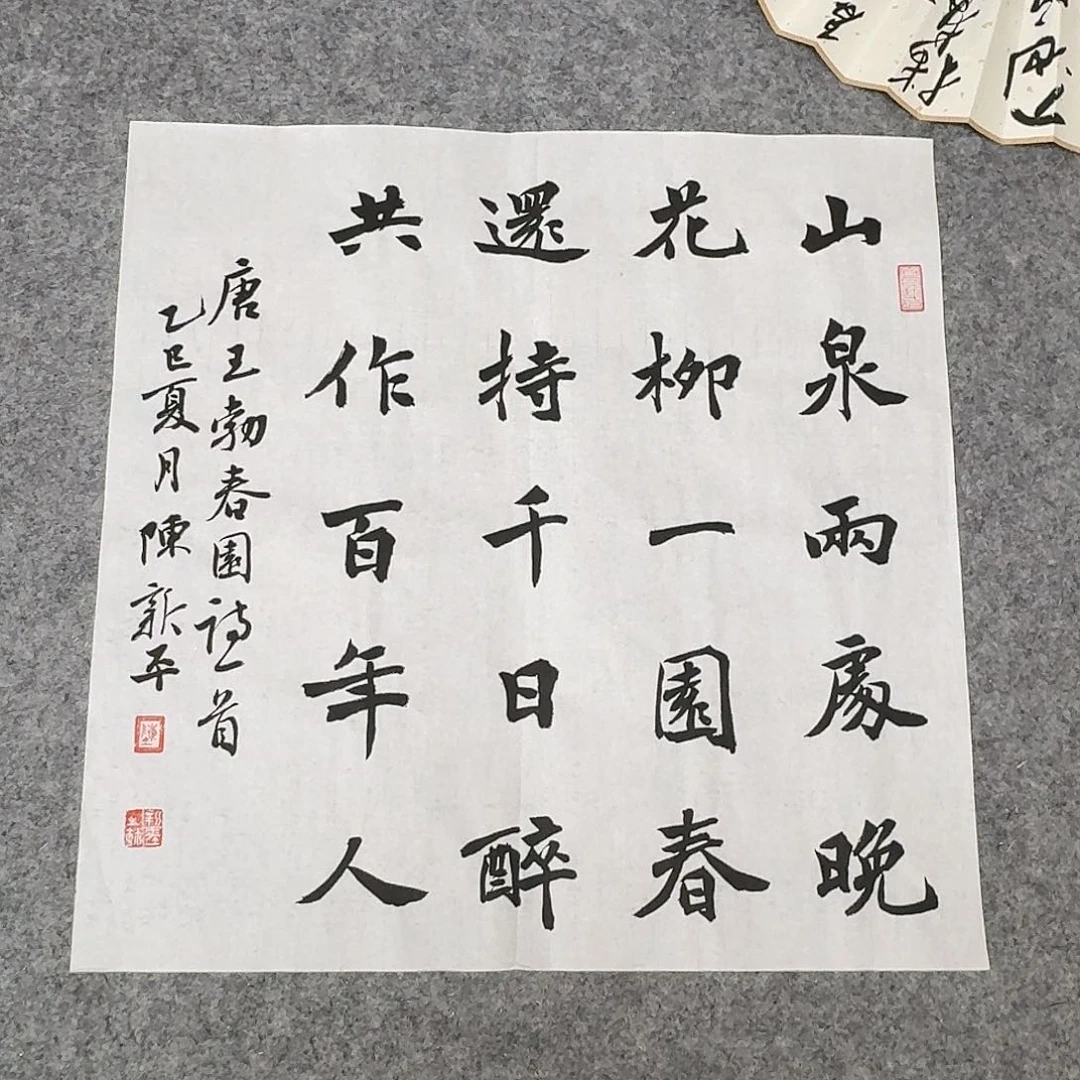 山泉兩處晚
花柳一園春
還持千日醉
共作百年人
唐王勃春園詩一首
乙巳夏月陳新平